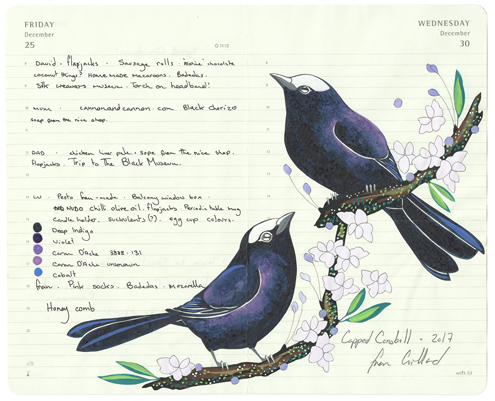 FRIDAY
December
25
WEDNESDAY
December
30
David. flapjacks. Sausage rolls. chocolate
coconut things? Homemade macaroons. Badedas.
Silk weavers museum. Torch on headband!
MUM. cannonandcannon.com Black Chorizo
soap from the nice shop.
DAD. chicken liver pate. soap from the nice shop.
flapjacks. Trip to The Black Museum.
W. Pesto from . Balcony window box.
NUDO chilli olive oil. flapjacks Periodic table mug
Candle holder. succulents(?). egg cup colours.
Deep Indigo
Violet
Caran D'Ache 3888.131
Caran D'Ache unknown
Cobalt
fran. Pink socks. Badedas. mozarella
Honey comb
Capped Conebill. 2017
fran Giffard